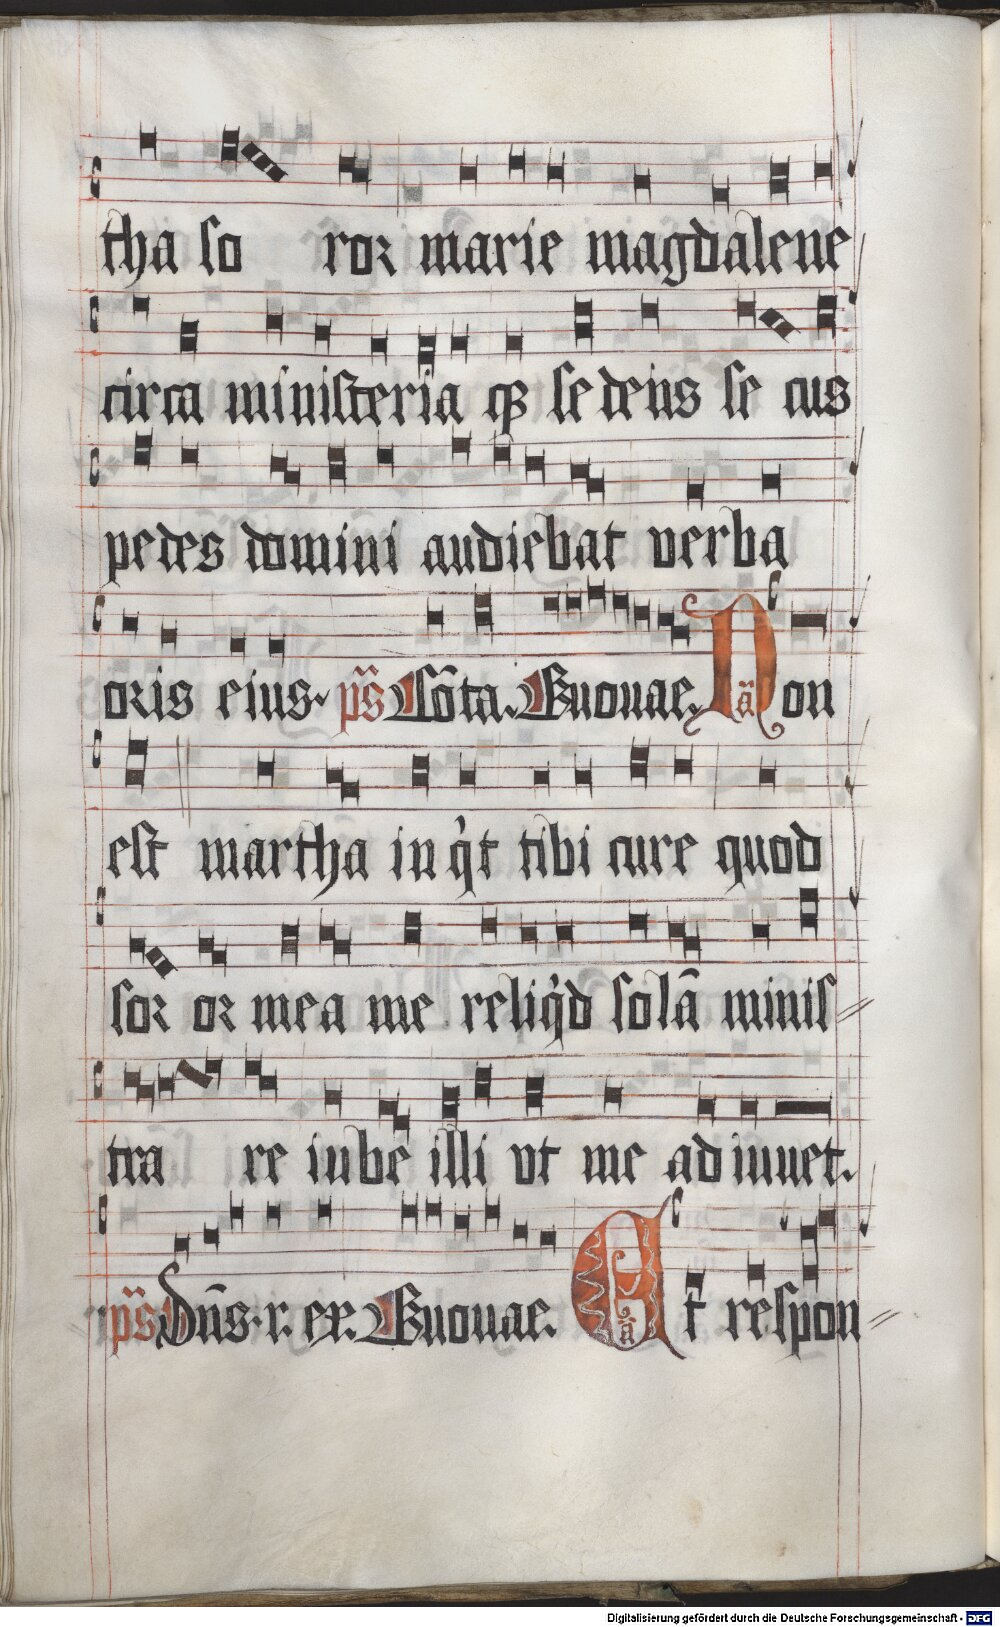 tha so ror marie magdalene
circa ministeria qꝫ sedens se cus
pedes domini audiebat verba
oris eius. ps̄ Cōta. Euouae. Non a
est martha inqͥt tibi cure quod
soror mea me reliqͥd solā minis
trare iube illi vt me adiuuet.
ps̄ Dn̄s. r. ex. Euouae. Et a respon
Digitalisierung gefördert durch die Deutsche Forschungsgemeinschaft - DFG